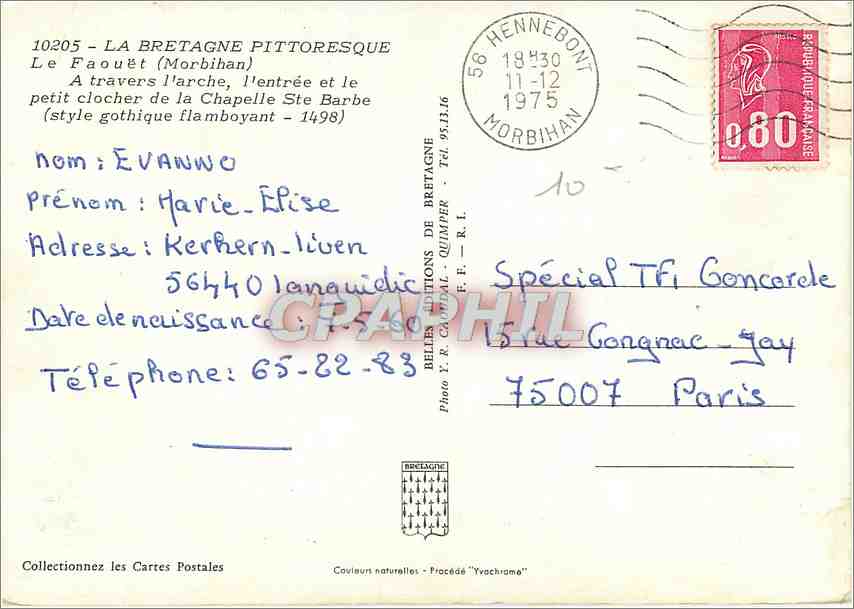 10205 - LA BRETAGNE PITTORESQUE
Le Faouët (Morbihan)
A travers l'arche, l'entrée et le
petit clocher de la Chapelle Ste Barbe
(style gothique flamboyant - 1498)
nom : EVANNO
prénom : Marie-Elise
Adresse : Kerhern-liven
56440 languidic
Date de naissance : 7-5-60
Téléphone : 65-22-83
56 HENNEBONT
18H30
11-12
1975
MORBIHAN
POSTES
REPUBLIQUE FRANÇAISE
0,80
10
BELLES EDITIONS DE BRETAGNE
Photo Y. R. CAOUDAL - QUIMPER - Tél. 95.13.16
F. F. — R. I.
CPAPHIL
Spécial TF1 Concorde
15 rue Congnac-Jay
75007 Paris
BRETAGNE
Collectionnez les Cartes Postales
Couleurs naturelles - Procédé "Yvachrome"